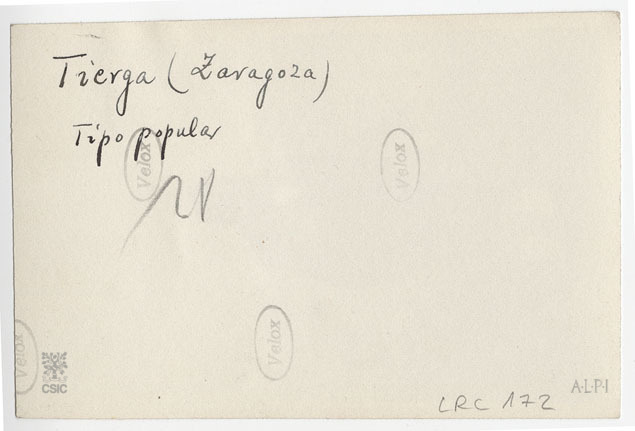 Tierga (Zaragoza)
Tipo popular
Velox
Velox
Velox
Velox
CSIC
A·L·P·I
LRC 172